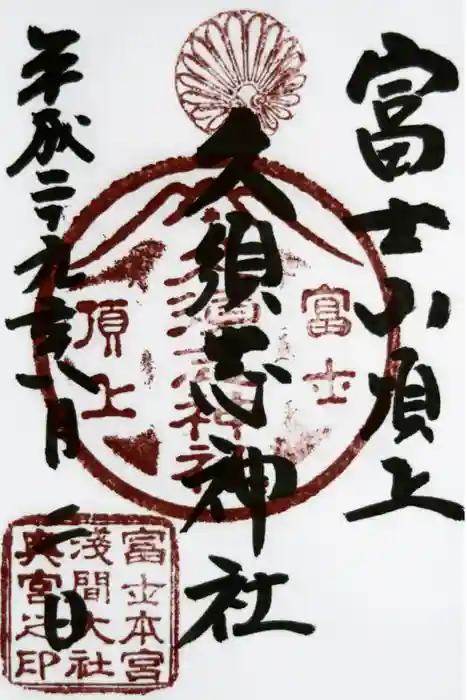 富士山頂上
久須志神社
平成二十九年八月 日
富士
久須志神社
頂上
富士本宮
淺間大社
奥宮之印